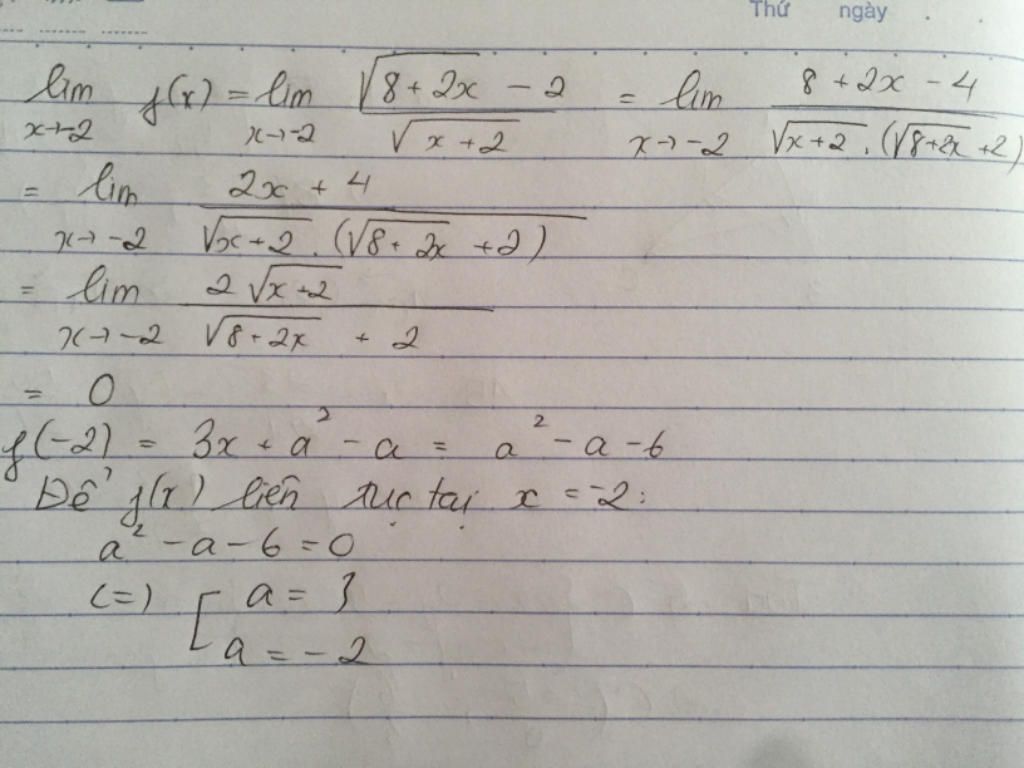 Thứ ngày . .
lim x→-2 f(x) = lim x→-2 (√(8+2x) - 2)/√(x+2) = lim x→-2 (8+2x-4)/(√(x+2).(√(8+2x)+2))
= lim x→-2 (2x+4)/(√(x+2).(√(8+2x)+2))
= lim x→-2 (2√(x+2))/(√(8+2x)+2)
= 0
f(-2) = 3x + a² - a = a² - a - 6
Để f(x) liên tục tại x = -2:
a² - a - 6 = 0
(=) [ a = 3
a = -2